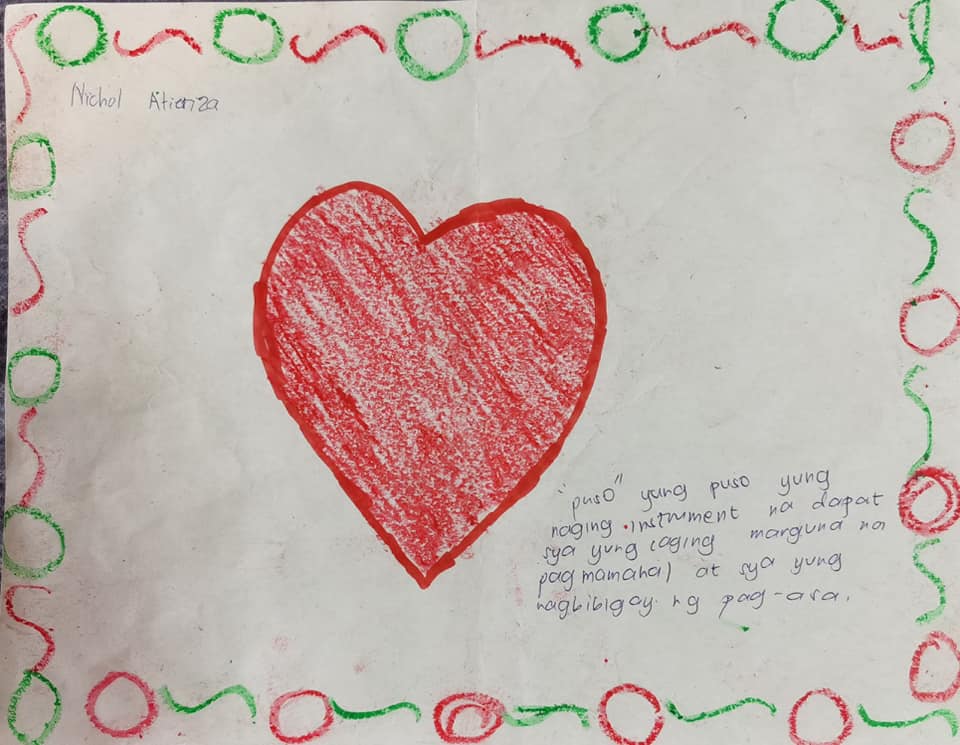 Nichol Atienza
"puso" yung puso yung
naging instrument na dapat
sya yung laging marguna na
pagmamahal at sya yung
nagbibigay ng pag-asa.